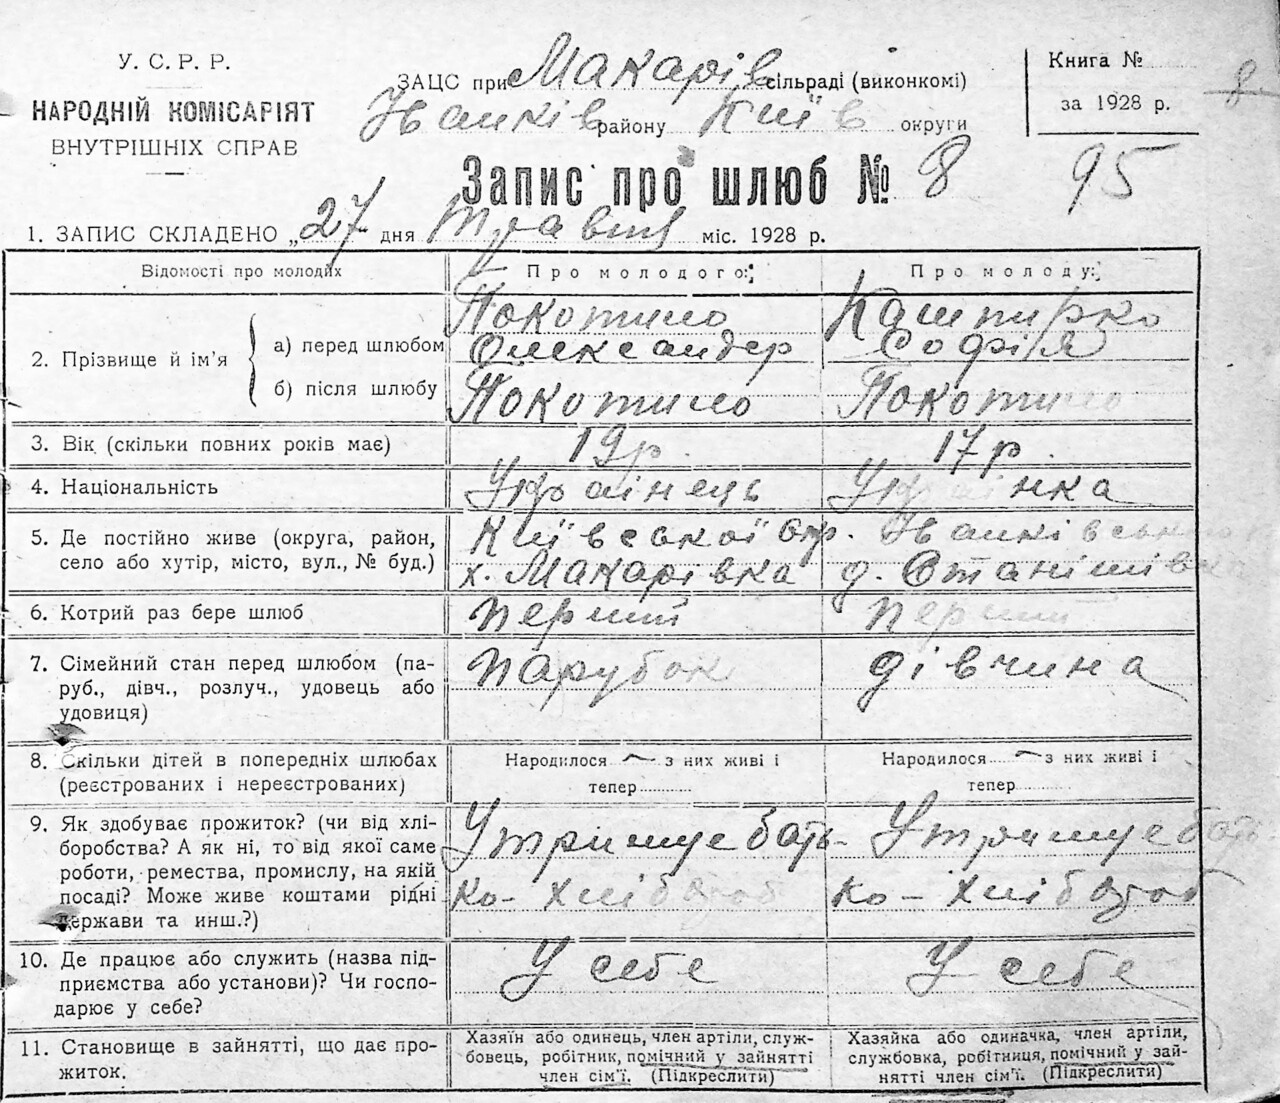 У. С. Р. Р.
НАРОДНІЙ КОМІСАРІЯТ
ВНУТРІШНІХ СПРАВ
ЗАЦС при Макарів сільраді (виконкомі)
Іванків району Київ округи
Книга №
за 1928 р.
8
Запис про шлюб № 8
95
1. ЗАПИС СКЛАДЕНО „27 дня Травня міс. 1928 р.
Відомості про молодих
Про молодого:
Про молоду:
2. Прізвище й ім'я
а) перед шлюбом
Покотило
Олександер
Каштирко
Софія
б) після шлюбу
Покотило
Покотило
3. Вік (скільки повних років має)
19 р.
17 р.
4. Національність
Українець
Українка
5. Де постійно живе (округа, район,
село або хутір, місто, вул., № буд.)
Київської окр.
х. Макарівка
Іванківського
д. Станішівка
6. Котрий раз бере шлюб
перший
перший
7. Сімейний стан перед шлюбом (па-
руб., дівч., розлуч., удовець або
удовиця)
парубок
дівчина
8. Скільки дітей в попередніх шлюбах
(реєстрованих і нереєстрованих)
Народилося — з них живі і
тепер
Народилося — з них живі і
тепер
9. Як здобуває прожиток? (чи від хлі-
боробства? А як ні, то від якої саме
роботи, ремества, промислу, на якій
посаді? Може живе коштами рідні
держави та инш.?)
Утримує бать-
ко - хлібороб
Утримує бать
ко - хлібороб
10. Де працює або служить (назва під-
приємства або установи)? Чи госпо-
дарює у себе?
У себе
У себе
11. Становище в зайнятті, що дає про-
житок.
Хазяїн або одинець, член артіли, служ-
бовець, робітник, помічний у зайнятті
член сім'ї. (Підкреслити)
Хазяйка або одиначка, член артіли,
службовка, робітниця, помічний у зай-
нятті член сім'ї. (Підкреслити)